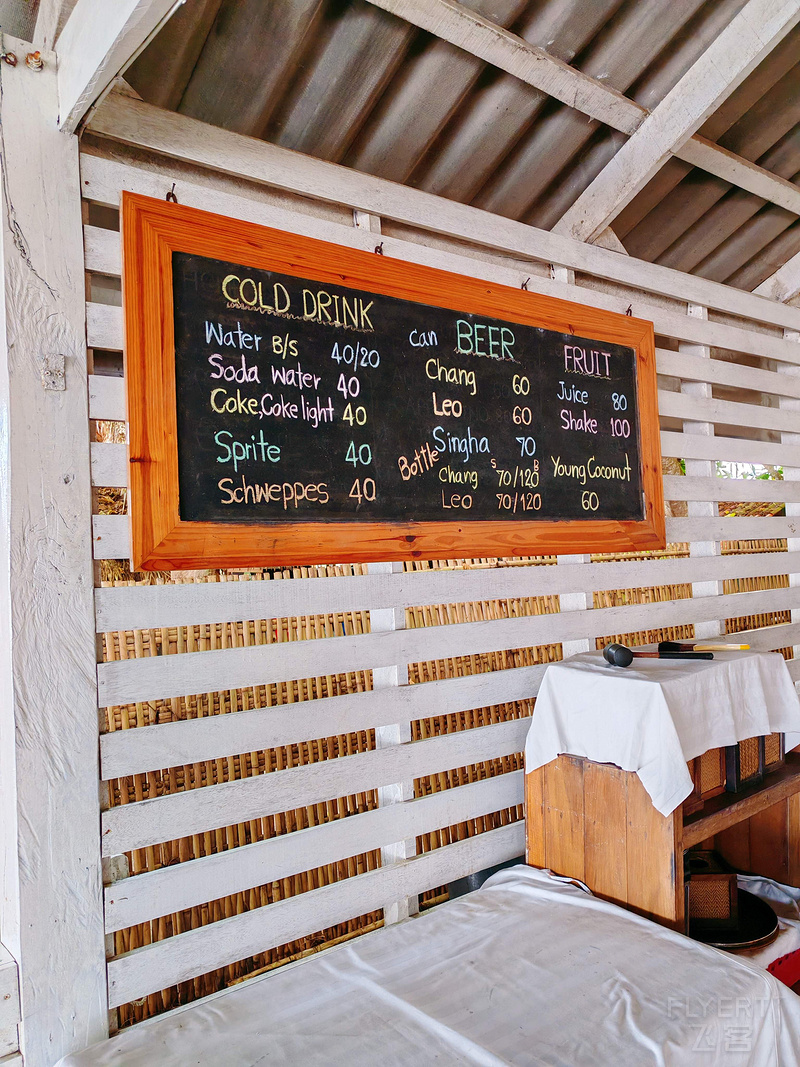 COLD DRINK
Water B/S 40/20
Soda water 40
Coke,Coke light 40
Sprite 40
Schweppes 40
Can BEER
Chang 60
Leo 60
Singha 70
Bottle
S B
Chang 70/120
Leo 70/120
FRUIT
Juice 80
Shake 100
Young Coconut
60
FLYERT
飞客